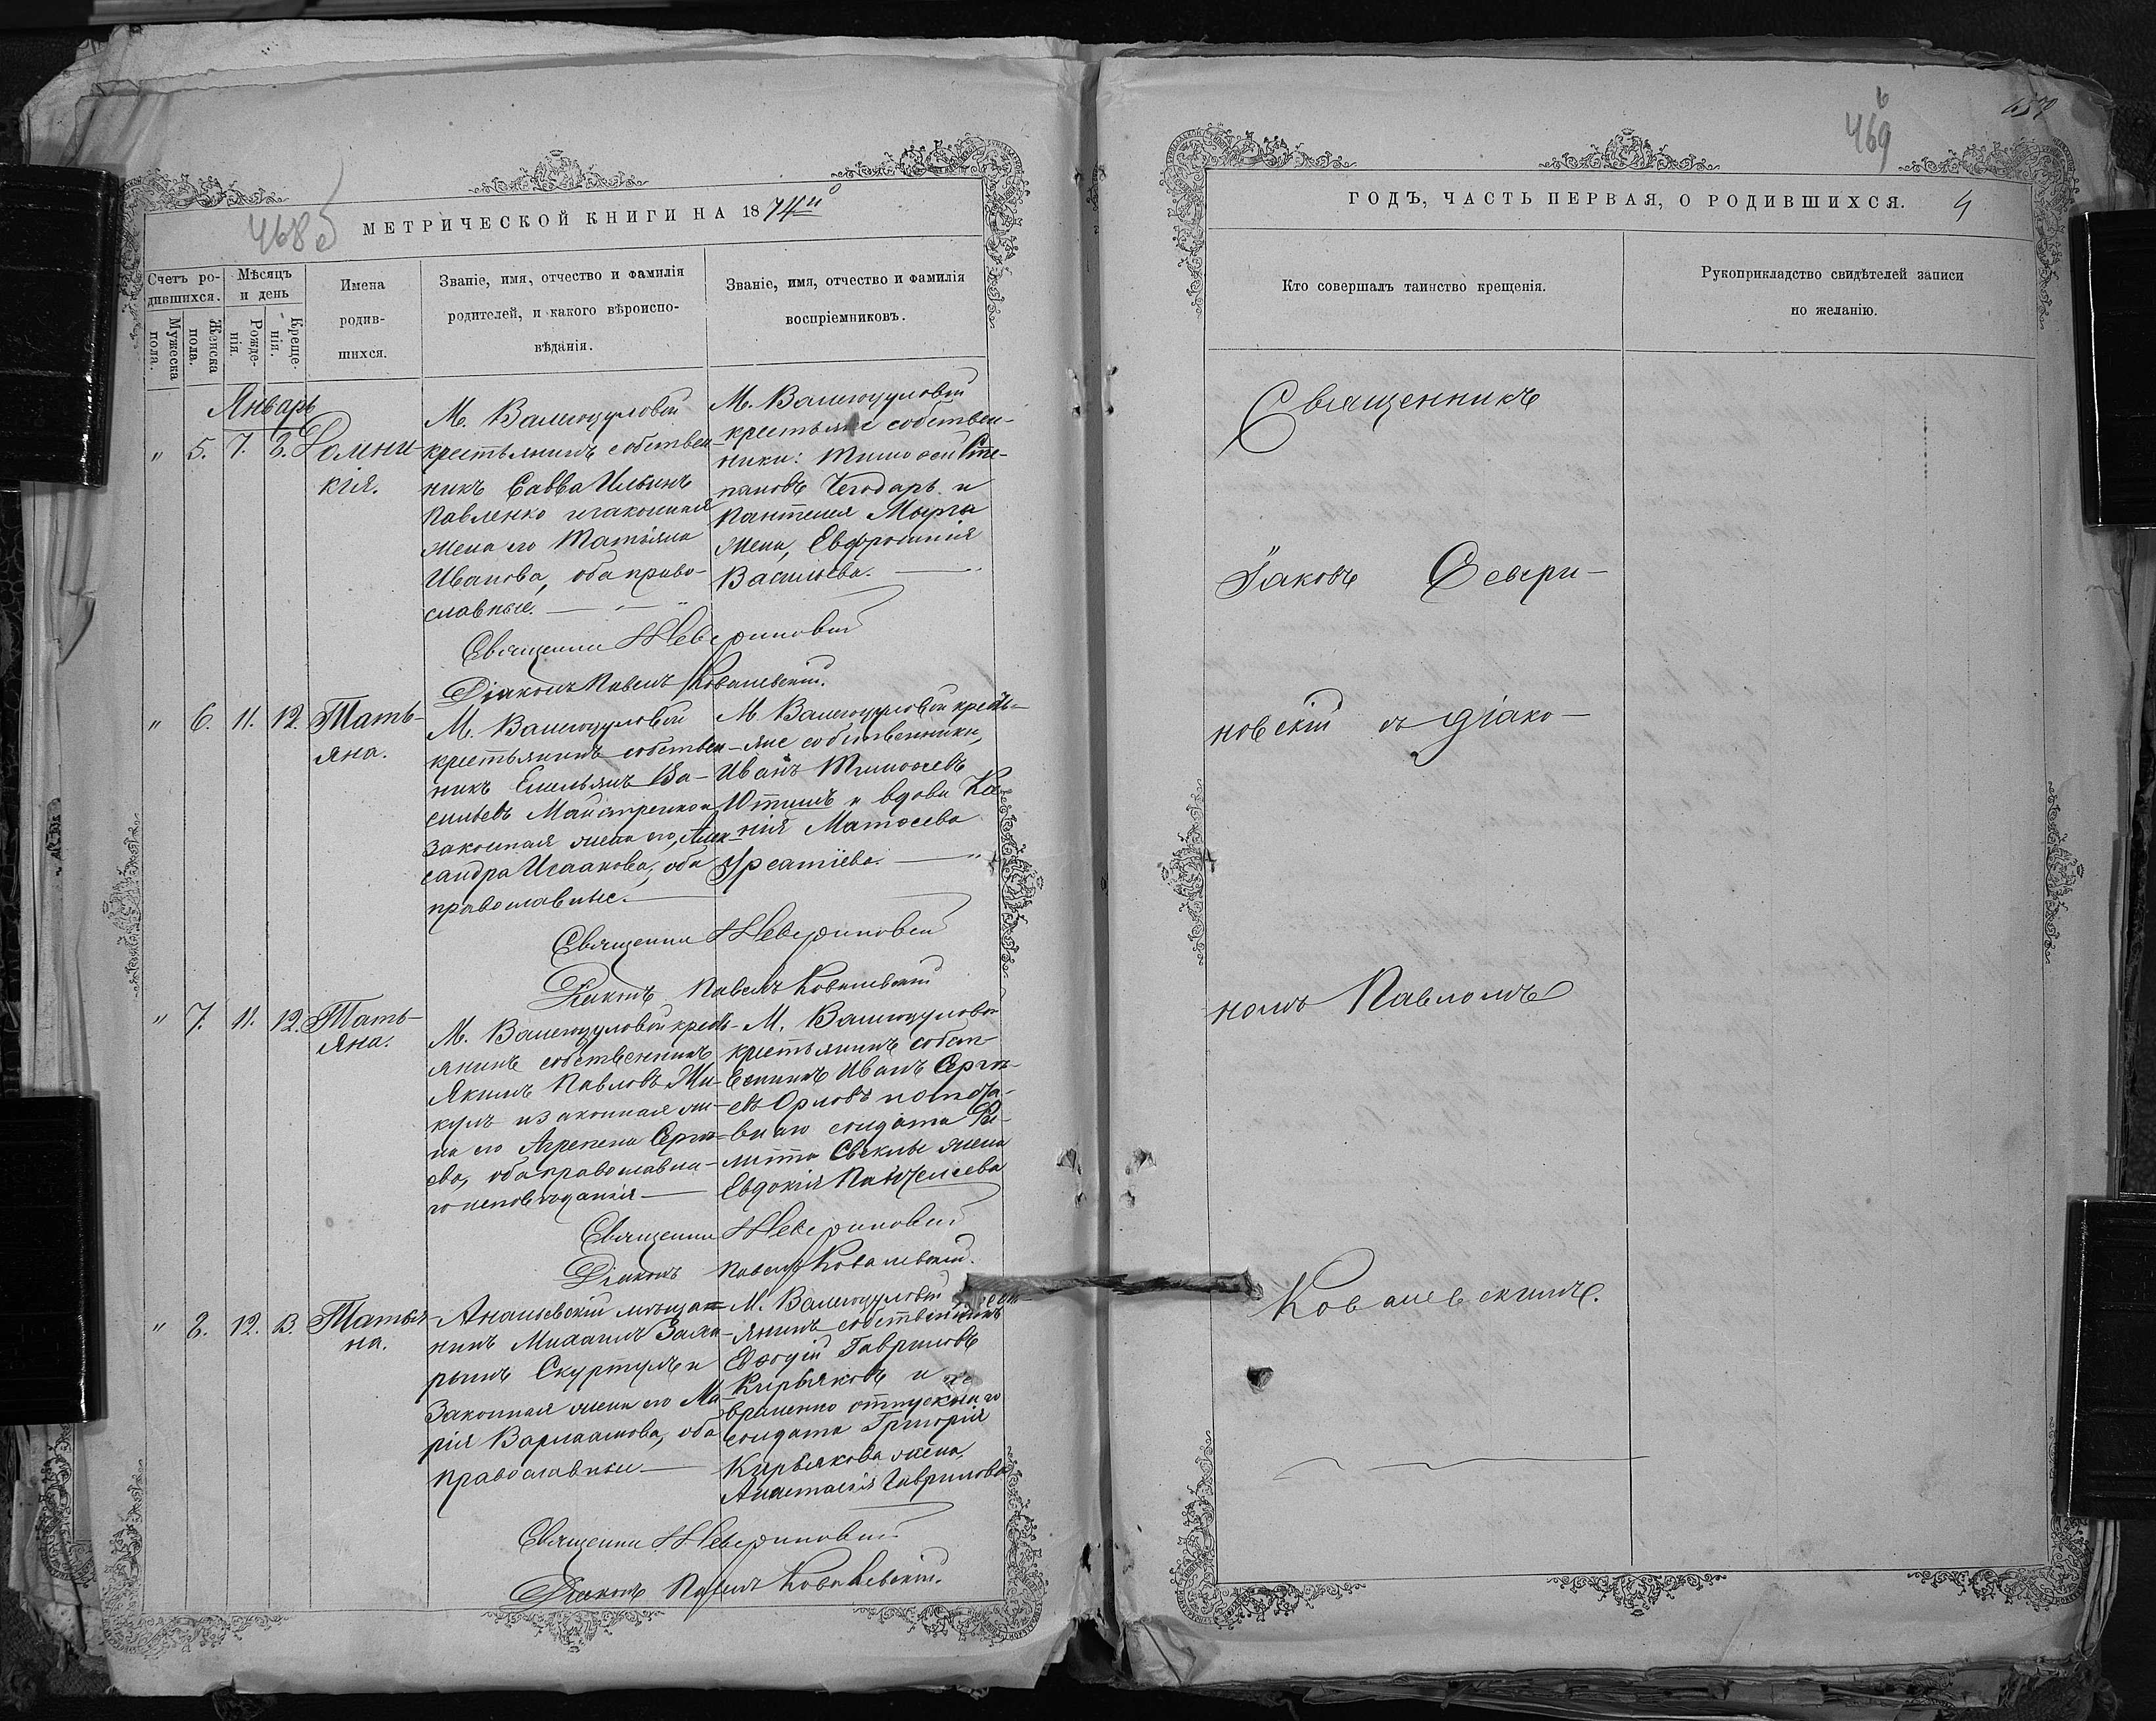 468 б
МЕТРИЧЕСКОЙ КНИГИ НА 1874й
Счетъ ро-
дившихся.
Мѣсяцъ
и день
Имена
родив-
шихся.
Званіе, имя, отчество и фамилія
родителей, и какого вѣроиспо-
вѣданія.
Званіе, имя, отчество и фамилія
воспріемниковъ.
Мужеска
пола.
Женска
пола.
Рожде-
нія.
Креще-
нія.
Январь
" 5. 7. 8. Домни-
кія.
М. Валегоцуловой
крестьянинъ собствен-
никъ Савва Ильинъ
Павленко и законная
жена его Татіяна
Иванова, оба право-
славные.
М. Валегоцуловой
крестьяне собствен-
ники: Тимоѳей Сте-
пановъ Чегодарь и
Пантелея Мырга
жена, Евфросинія
Васильева.
Священни Н Северіновскій
Діаконъ Павелъ Ковалевскій.
" 6. 11. 12. Тать-
яна.
М. Валегоцуловой
крестьянинъ собствен-
никъ Емельянъ Ва-
сильевъ Майстренко и
законная жена его, Алек-
сандра Исаакова, оба
православные.
М. Валегоцуловой кресть-
яне собственники,
Иванъ Тимоѳеевъ
Ютишъ и вдова Ксе-
нія Матѳеева
Урсатіева.
Священни Н Северіновскій
Діаконъ Павелъ Ковалевскій
" 7. 11. 12. Тать-
яна.
М. Валегоцуловой кресть-
янинъ собственникъ
Якимъ Павловъ Ми-
кулъ и законная же-
на его Агрепена Серге-
ева, оба православна-
го исповѣданія
М. Валегоцуловой
крестьянинъ собст-
венникъ Иванъ Сергѣ-
евъ Орловъ и отста-
внаго солдата Фи-
липпа Свеклы жена
Евдокія Пантелеева
Священни Н Северіновскій
Діаконъ Павелъ Ковалевскій.
" 8. 12. 13. Татья-
на.
Ананьевскій мѣща-
нинъ Михаилъ Заха-
рьинъ Скуртулъ и
законная жена его Ма-
рія Варлаамова, оба
православные
М. Валегоцуловой крест-
янинъ собственникъ
Евѳодій Гавриловъ
Кирьяковъ и
временно отпускнаго
солдата Григорія
Кирьякова жена,
Анастасія Гаврилова
Священни Н Северіновскій
Діаконъ Павелъ Ковалевскій.
469
ГОДЪ, ЧАСТЬ ПЕРВАЯ, О РОДИВШИХСЯ. 4
Кто совершалъ таинство крещенія.
Рукоприкладство свидѣтелей записи
по желанію.
Священникъ
Іаковъ Севери-
новскій съ діако-
номъ Павломъ
Ковалевскимъ.